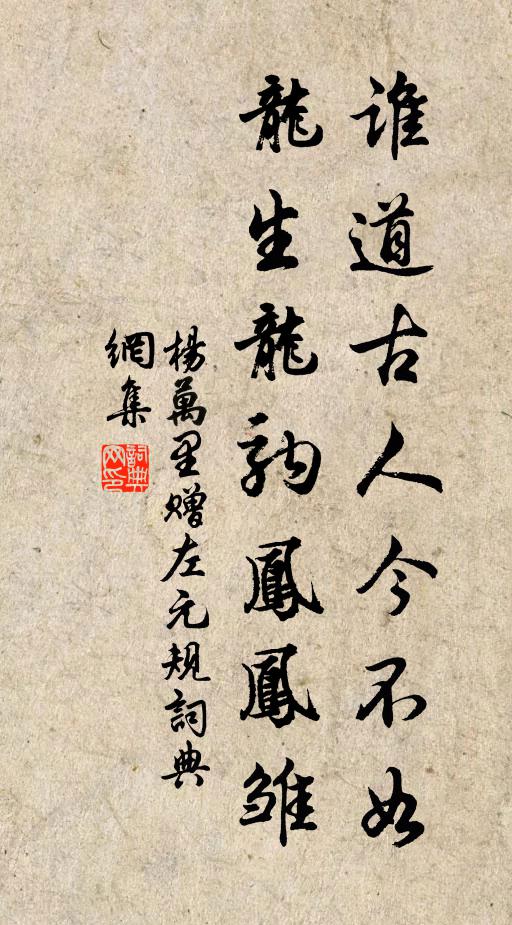 誰道古人今不如
龍生龍駒鳳鳳雛
楊萬里贈左元規詞典
網集
詞典
网印